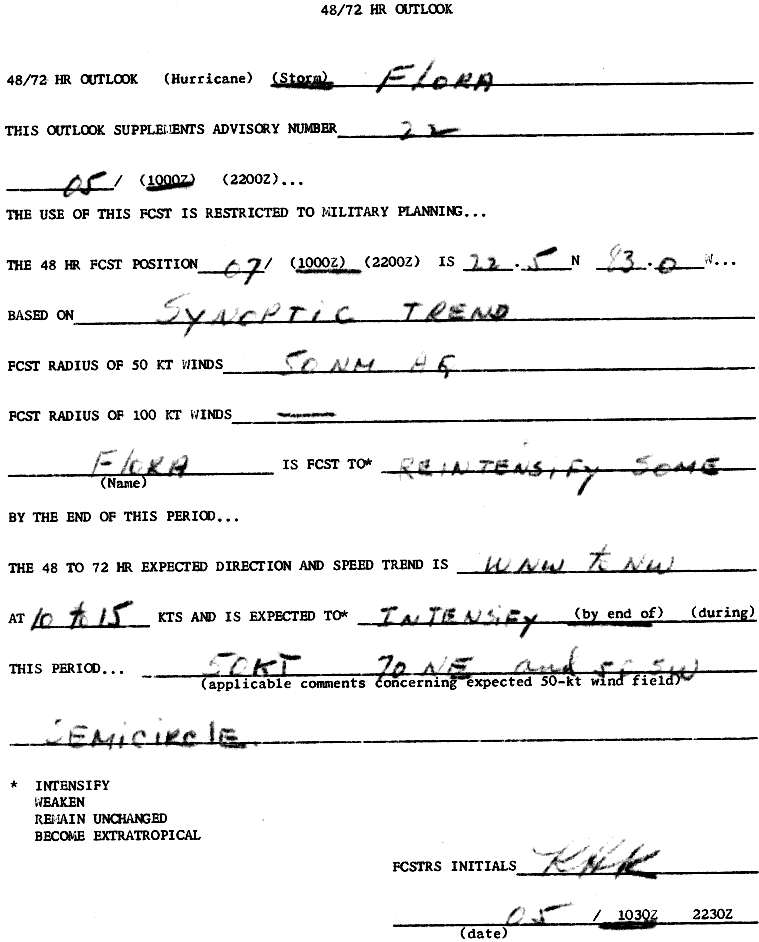 48/72 HR OUTLOOK
48/72 HR OUTLOOK (Hurricane) (Storm) FlORA
THIS OUTLOOK SUPPLEMENTS ADVISORY NUMBER 22
05/ (1000Z) (2200Z)...
THE USE OF THIS FCST IS RESTRICTED TO MILITARY PLANNING...
THE 48 HR FCST POSITION 07/ (1000Z) (2200Z) IS 22.5 N 83.0 W...
BASED ON SYNOPTIC TREND
FCST RADIUS OF 50 KT WINDS 50 NM
FCST RADIUS OF 100 KT WINDS —
FlORA IS FCST TO* REINTENSIFY SOME
(Name)
BY THE END OF THIS PERIOD...
THE 48 TO 72 HR EXPECTED DIRECTION AND SPEED TREND IS WNW to NW
AT 10 to 15 KTS AND IS EXPECTED TO* INTENSIFY (by end of) (during)
THIS PERIOD... 50KT 70 NE and 50 SW
(applicable comments concerning expected 50-kt wind field)
SEMICIRCLE
* INTENSIFY
WEAKEN
REMAIN UNCHANGED
BECOME EXTRATROPICAL
FCSTRS INITIALS
05 / 1030Z 2230Z
(date)